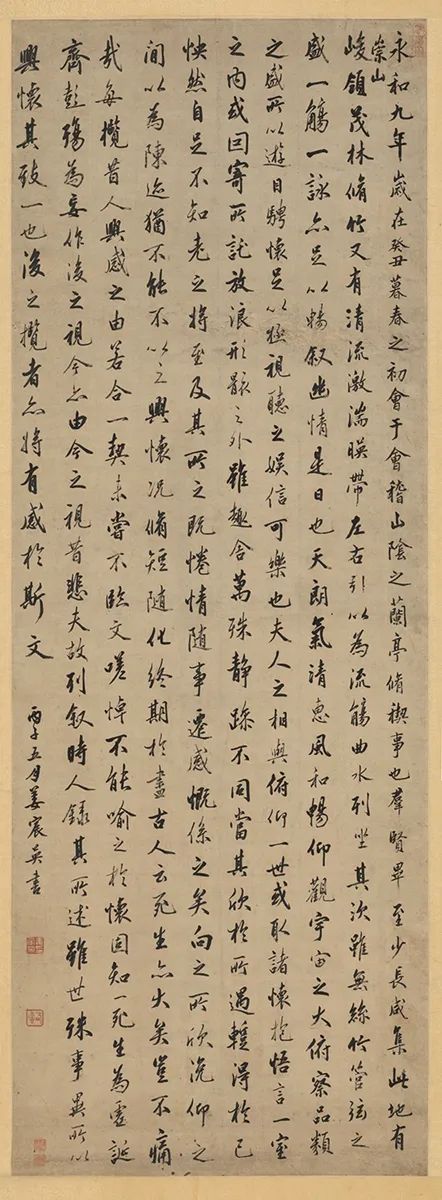 永和九年歲在癸丑暮春之初會于會稽山陰之蘭亭脩禊事也羣賢畢至少長咸集此地有
崇山
峻領茂林脩竹又有清流激湍暎帶左右引以為流觴曲水列坐其次雖無絲竹管弦之
盛一觴一詠亦足以暢叙幽情是日也天朗氣清惠風和暢仰觀宇宙之大俯察品類
之盛所以遊目騁懷足以極視聽之娛信可樂也夫人之相與俯仰一世或取諸懷抱悟言一室
之內或因寄所託放浪形骸之外雖趣舍萬殊静躁不同當其欣於所遇蹔得於己
怏然自足不知老之將至及其所之既惓情隨事遷感慨係之矣向之所欣俛仰之
間以為陳迹猶不能不以之興懷況脩短隨化終期於盡古人云死生亦大矣豈不痛
哉每攬昔人興感之由若合一契未嘗不臨文嗟悼不能喻之於懷固知一死生為虛誕
齊彭殤為妄作後之視今亦由今之視昔悲夫故列叙時人錄其所述雖世殊事異所以
興懷其致一也後之攬者亦將有感於斯文
丙子五月姜宸英書